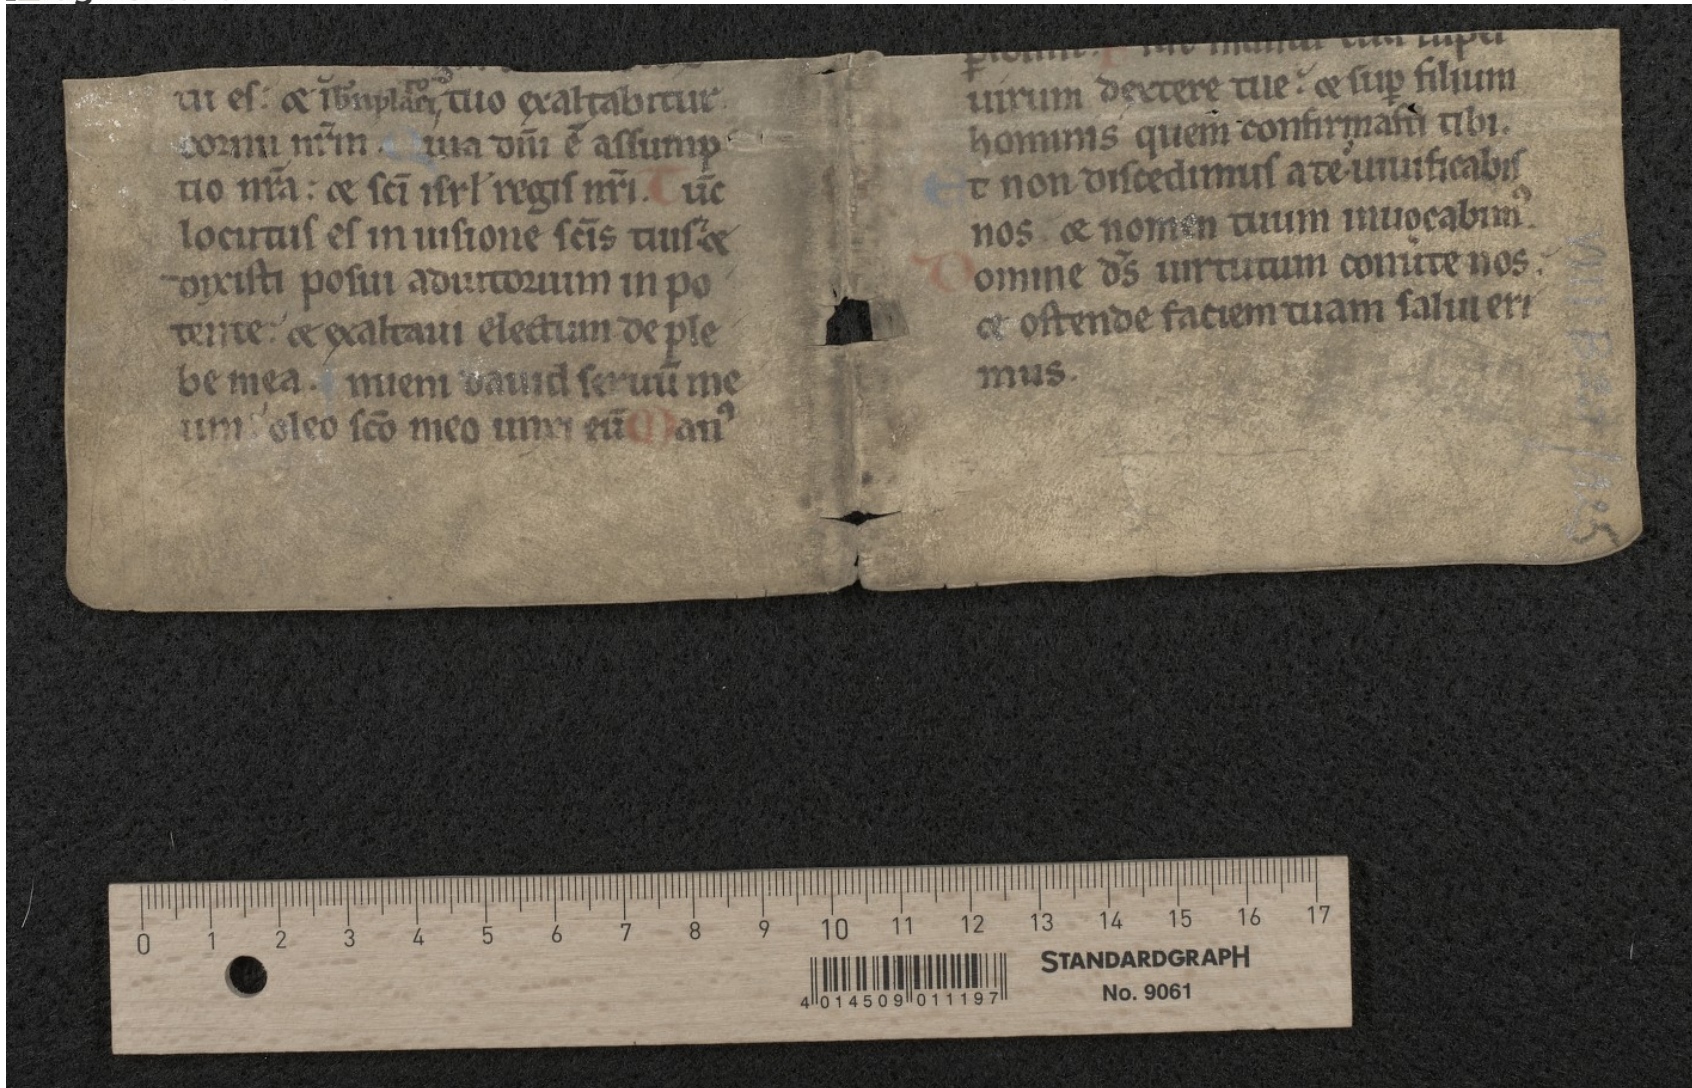 tu es: & i bn̄placito tuo exaltabitur
cornu nr̄m. Quia dn̄i ē assump
tio nr̄a: & sc̄i isrl' regis nr̄i. Tūc
locutus es in uisione sc̄is tuis: &
dixisti posui adiutorium in po
tente: & exaltaui electum de ple
be mea. nueni dauid seruū me
um: oleo sc̄o meo unxi eū Manꝰ
uirum dextere tue: & suꝑ filium
hominis quem confirmasti tibi.
Et non discedimus a te uiuificabis
nos & nomen tuum inuocabimꝰ.
Domine ds̄ uirtutum conuerte nos:
& ostende faciem tuam salui eri
mus.
0 1 2 3 4 5 6 7 8 9 10 11 12 13 14 15 16 17
STANDARDGRAPH
No. 9061
4 014509 011197